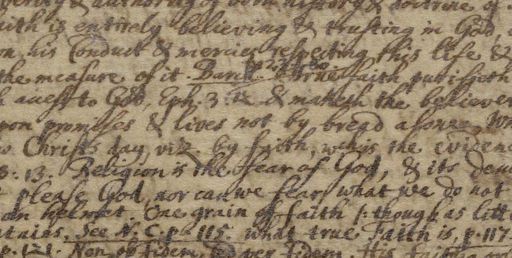 verity & authority of both history & doctrine of
aith is entirely believing & trusting in God,
on his Conduct & mercies respecting this life &
the measure of it. true faith purifieth
access to God, Eph. 3. 12 & maketh the believer
upon promises & lives not by bread alone.
to Christs day viz by faith, wch is the evidenc
3. 13. Religion is the fear of God, & its
please God, nor can we fear what we do not
an helmet. One grain of faith tho' as litt
ntains. See N. C. p. 115. what true Faith is p. 117
p. 121. Non ob fidem, sed per fidem. His